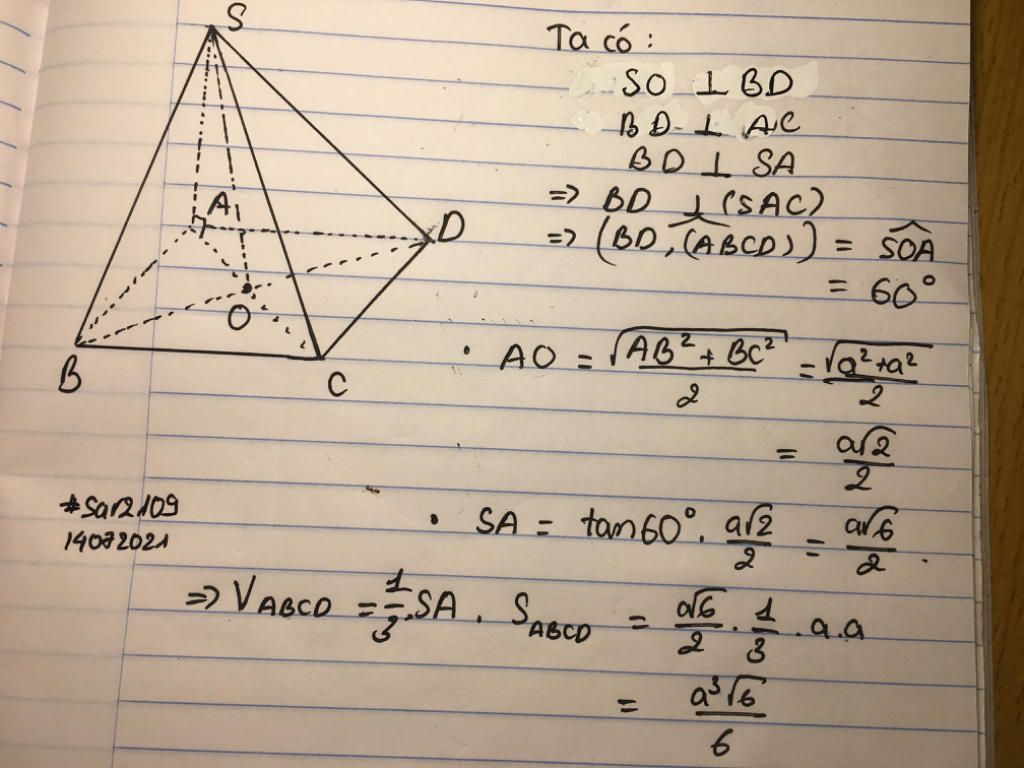 S
A
D
O
B
C
Ta có :
SO ⊥ BD
BD ⊥ AC
BD ⊥ SA
=> BD ⊥ (SAC)
=> (BD, (ABCD))^ = SOA^
= 60°
• AO = √(AB² + BC²)/2 = √(a²+a²)/2
= a√2/2
#Sar2109
14072021
• SA = tan60° . a√2/2 = a√6/2 .
=> V_ABCD = 1/3 . SA . S_ABCD = a√6/2 . 1/3 . a.a
= a³√6/6